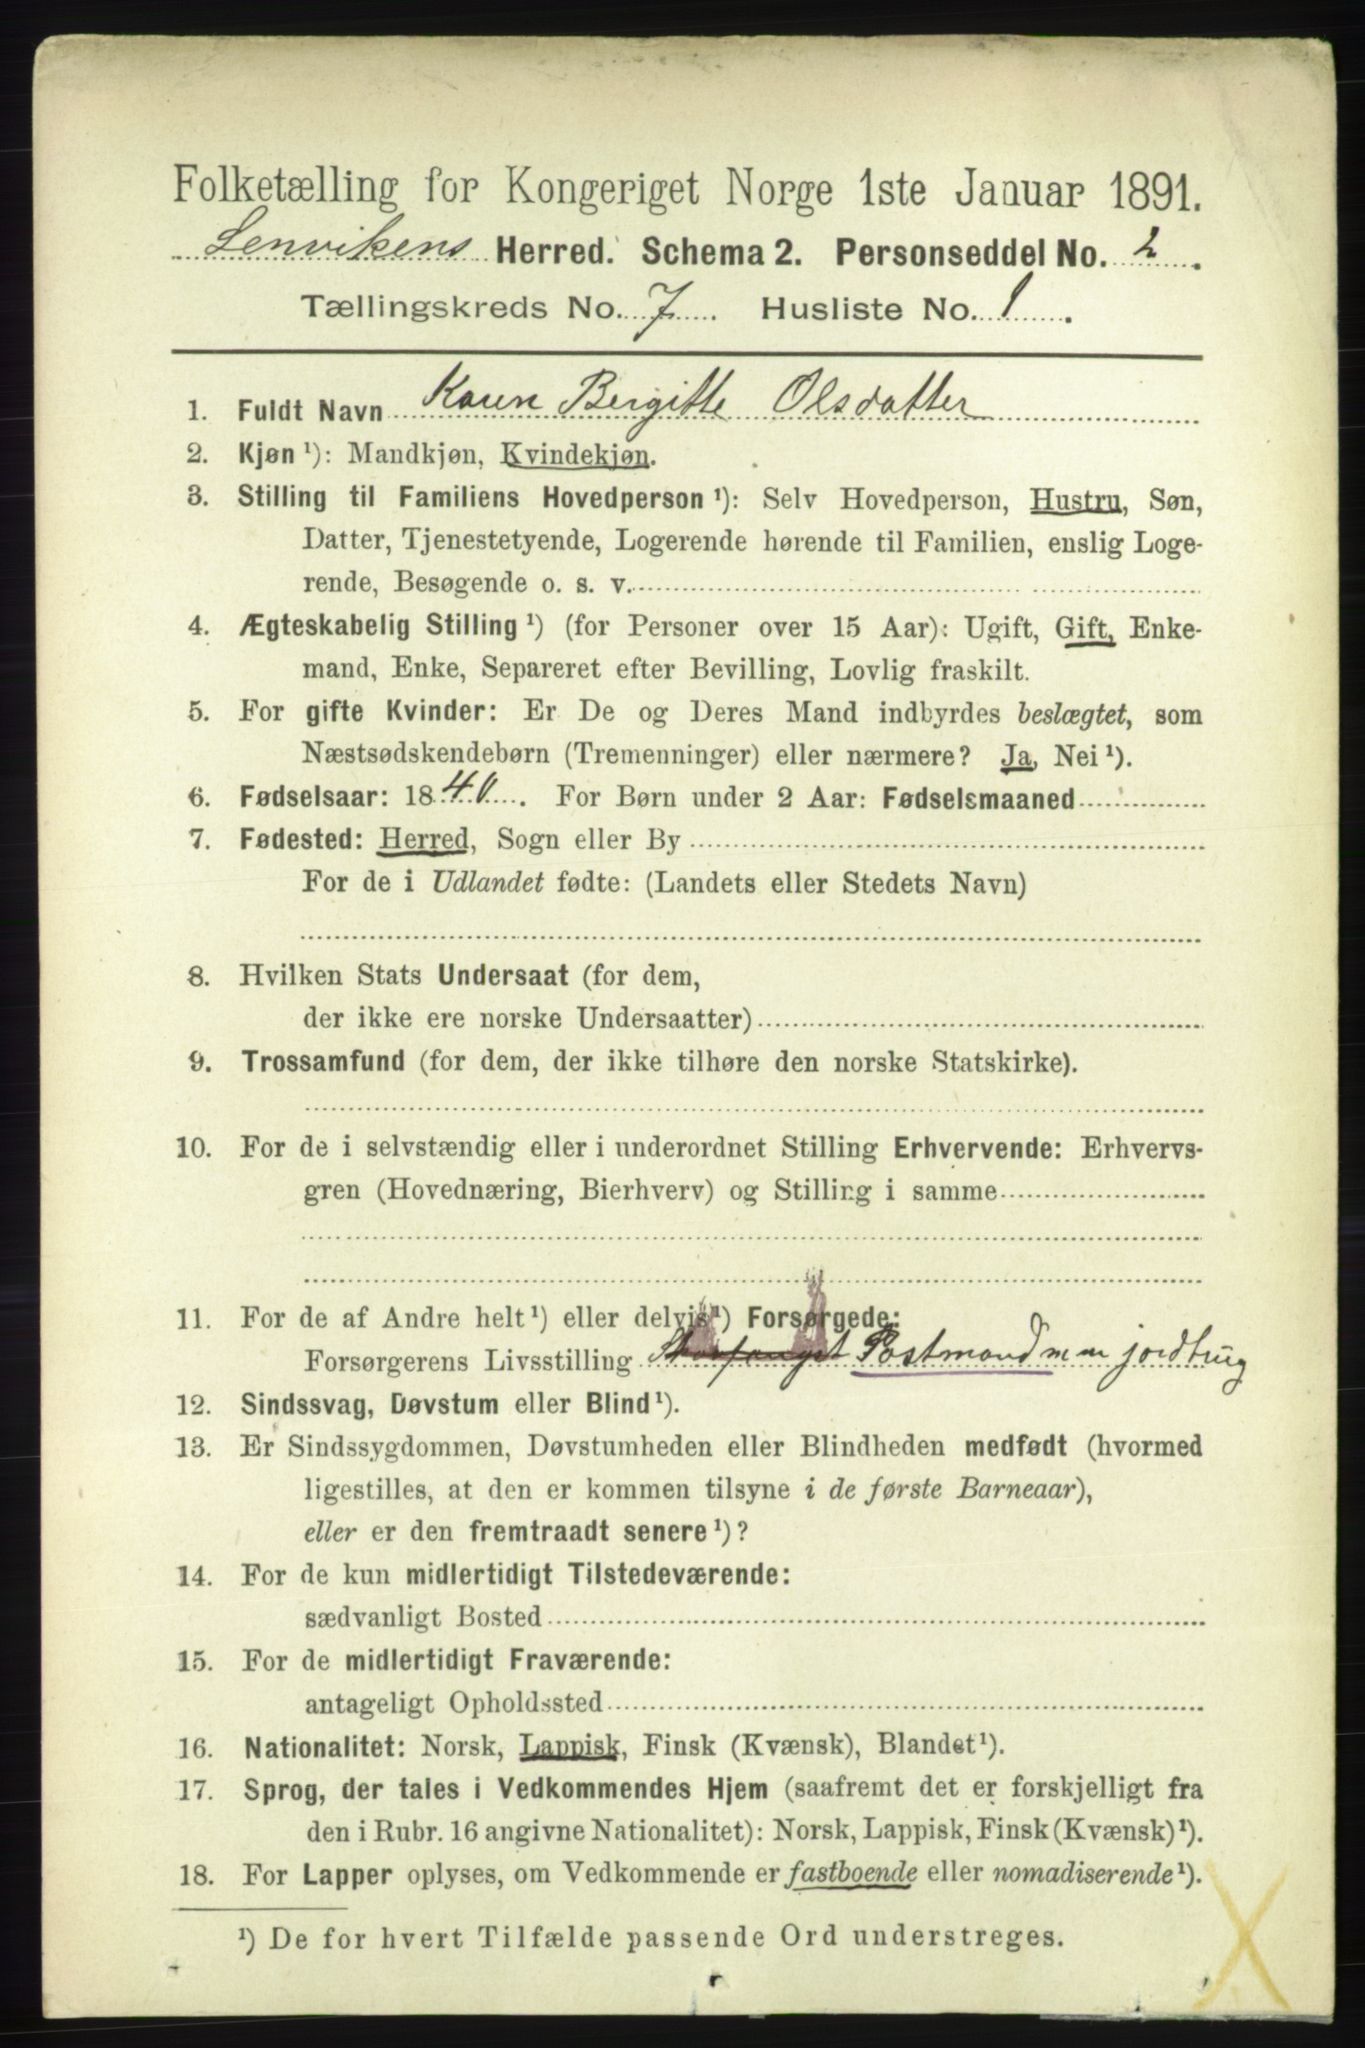 Folketælling for Kongeriget Norge 1ste Januar 1891.
Lenvikens Herred. Schema 2. Personseddel No. 2.
Tællingskreds No. 7. Husliste No. 1.
1. Fuldt Navn Karen Bergitte Olsdatter
2. Kjøn ¹): Mandkjøn, Kvindekjøn.
3. Stilling til Familiens Hovedperson ¹): Selv Hovedperson, Hustru, Søn,
Datter, Tjenestetyende, Logerende hørende til Familien, enslig Loge-
rende, Besøgende o. s. v.
4. Ægteskabelig Stilling ¹) (for Personer over 15 Aar): Ugift, Gift, Enke-
mand, Enke, Separeret efter Bevilling, Lovlig fraskilt.
5. For gifte Kvinder: Er De og Deres Mand indbyrdes beslægtet, som
Næstsødskendebørn (Tremenninger) eller nærmere? Ja, Nei ¹).
6. Fødselsaar: 1840. For Børn under 2 Aar: Fødselsmaaned
7. Fødested: Herred, Sogn eller By
For de i Udlandet fødte: (Landets eller Stedets Navn)
8. Hvilken Stats Undersaat (for dem,
der ikke ere norske Undersaatter)
9. Trossamfund (for dem, der ikke tilhøre den norske Statskirke).
10. For de i selvstændig eller i underordnet Stilling Erhvervende: Erhvervs-
gren (Hovednæring, Bierhverv) og Stilling i samme
11. For de af Andre helt ¹) eller delvis ¹) Forsørgede:
Forsørgerens Livsstilling Postmand m jordbrug
12. Sindssvag, Døvstum eller Blind ¹).
13. Er Sindssygdommen, Døvstumheden eller Blindheden medfødt (hvormed
ligestilles, at den er kommen tilsyne i de første Barneaar),
eller er den fremtraadt senere ¹)?
14. For de kun midlertidigt Tilstedeværende:
sædvanligt Bosted
15. For de midlertidigt Fraværende:
antageligt Opholdssted
16. Nationalitet: Norsk, Lappisk, Finsk (Kvænsk), Blandet ¹).
17. Sprog, der tales i Vedkommendes Hjem (saafremt det er forskjelligt fra
den i Rubr. 16 angivne Nationalitet): Norsk, Lappisk, Finsk (Kvænsk) ¹).
18. For Lapper oplyses, om Vedkommende er fastboende eller nomadiserende ¹).
¹) De for hvert Tilfælde passende Ord understreges.